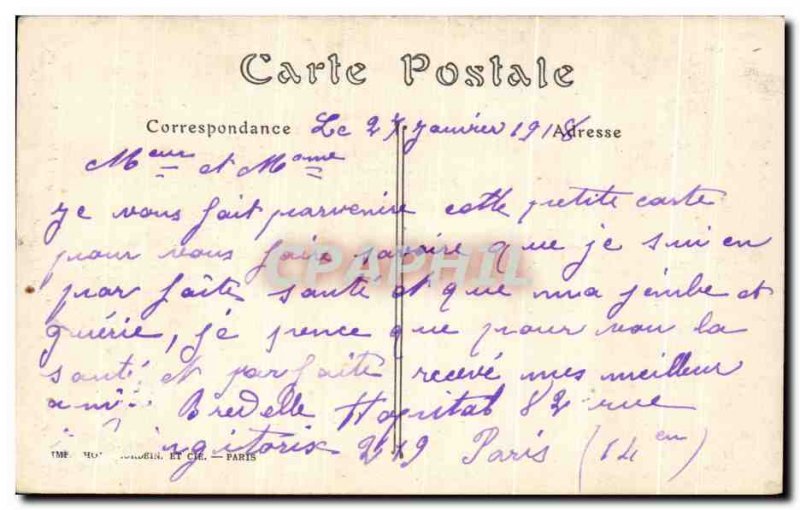 Carte Postale
Correspondance Le 27 Janvier 1918 Adresse
Meur et Mame
Je vous fait parvenire cette petite carte
pour vous faire savoire que je sui en
par faite santé et que ma jembe et
guérie, je pence que pour vou la
santé et parfaite recevé mes meilleur
Bredelle Hopital 82 rue
219 Paris (14en)
IMP. ET CIE. — PARIS
CPAPHIL